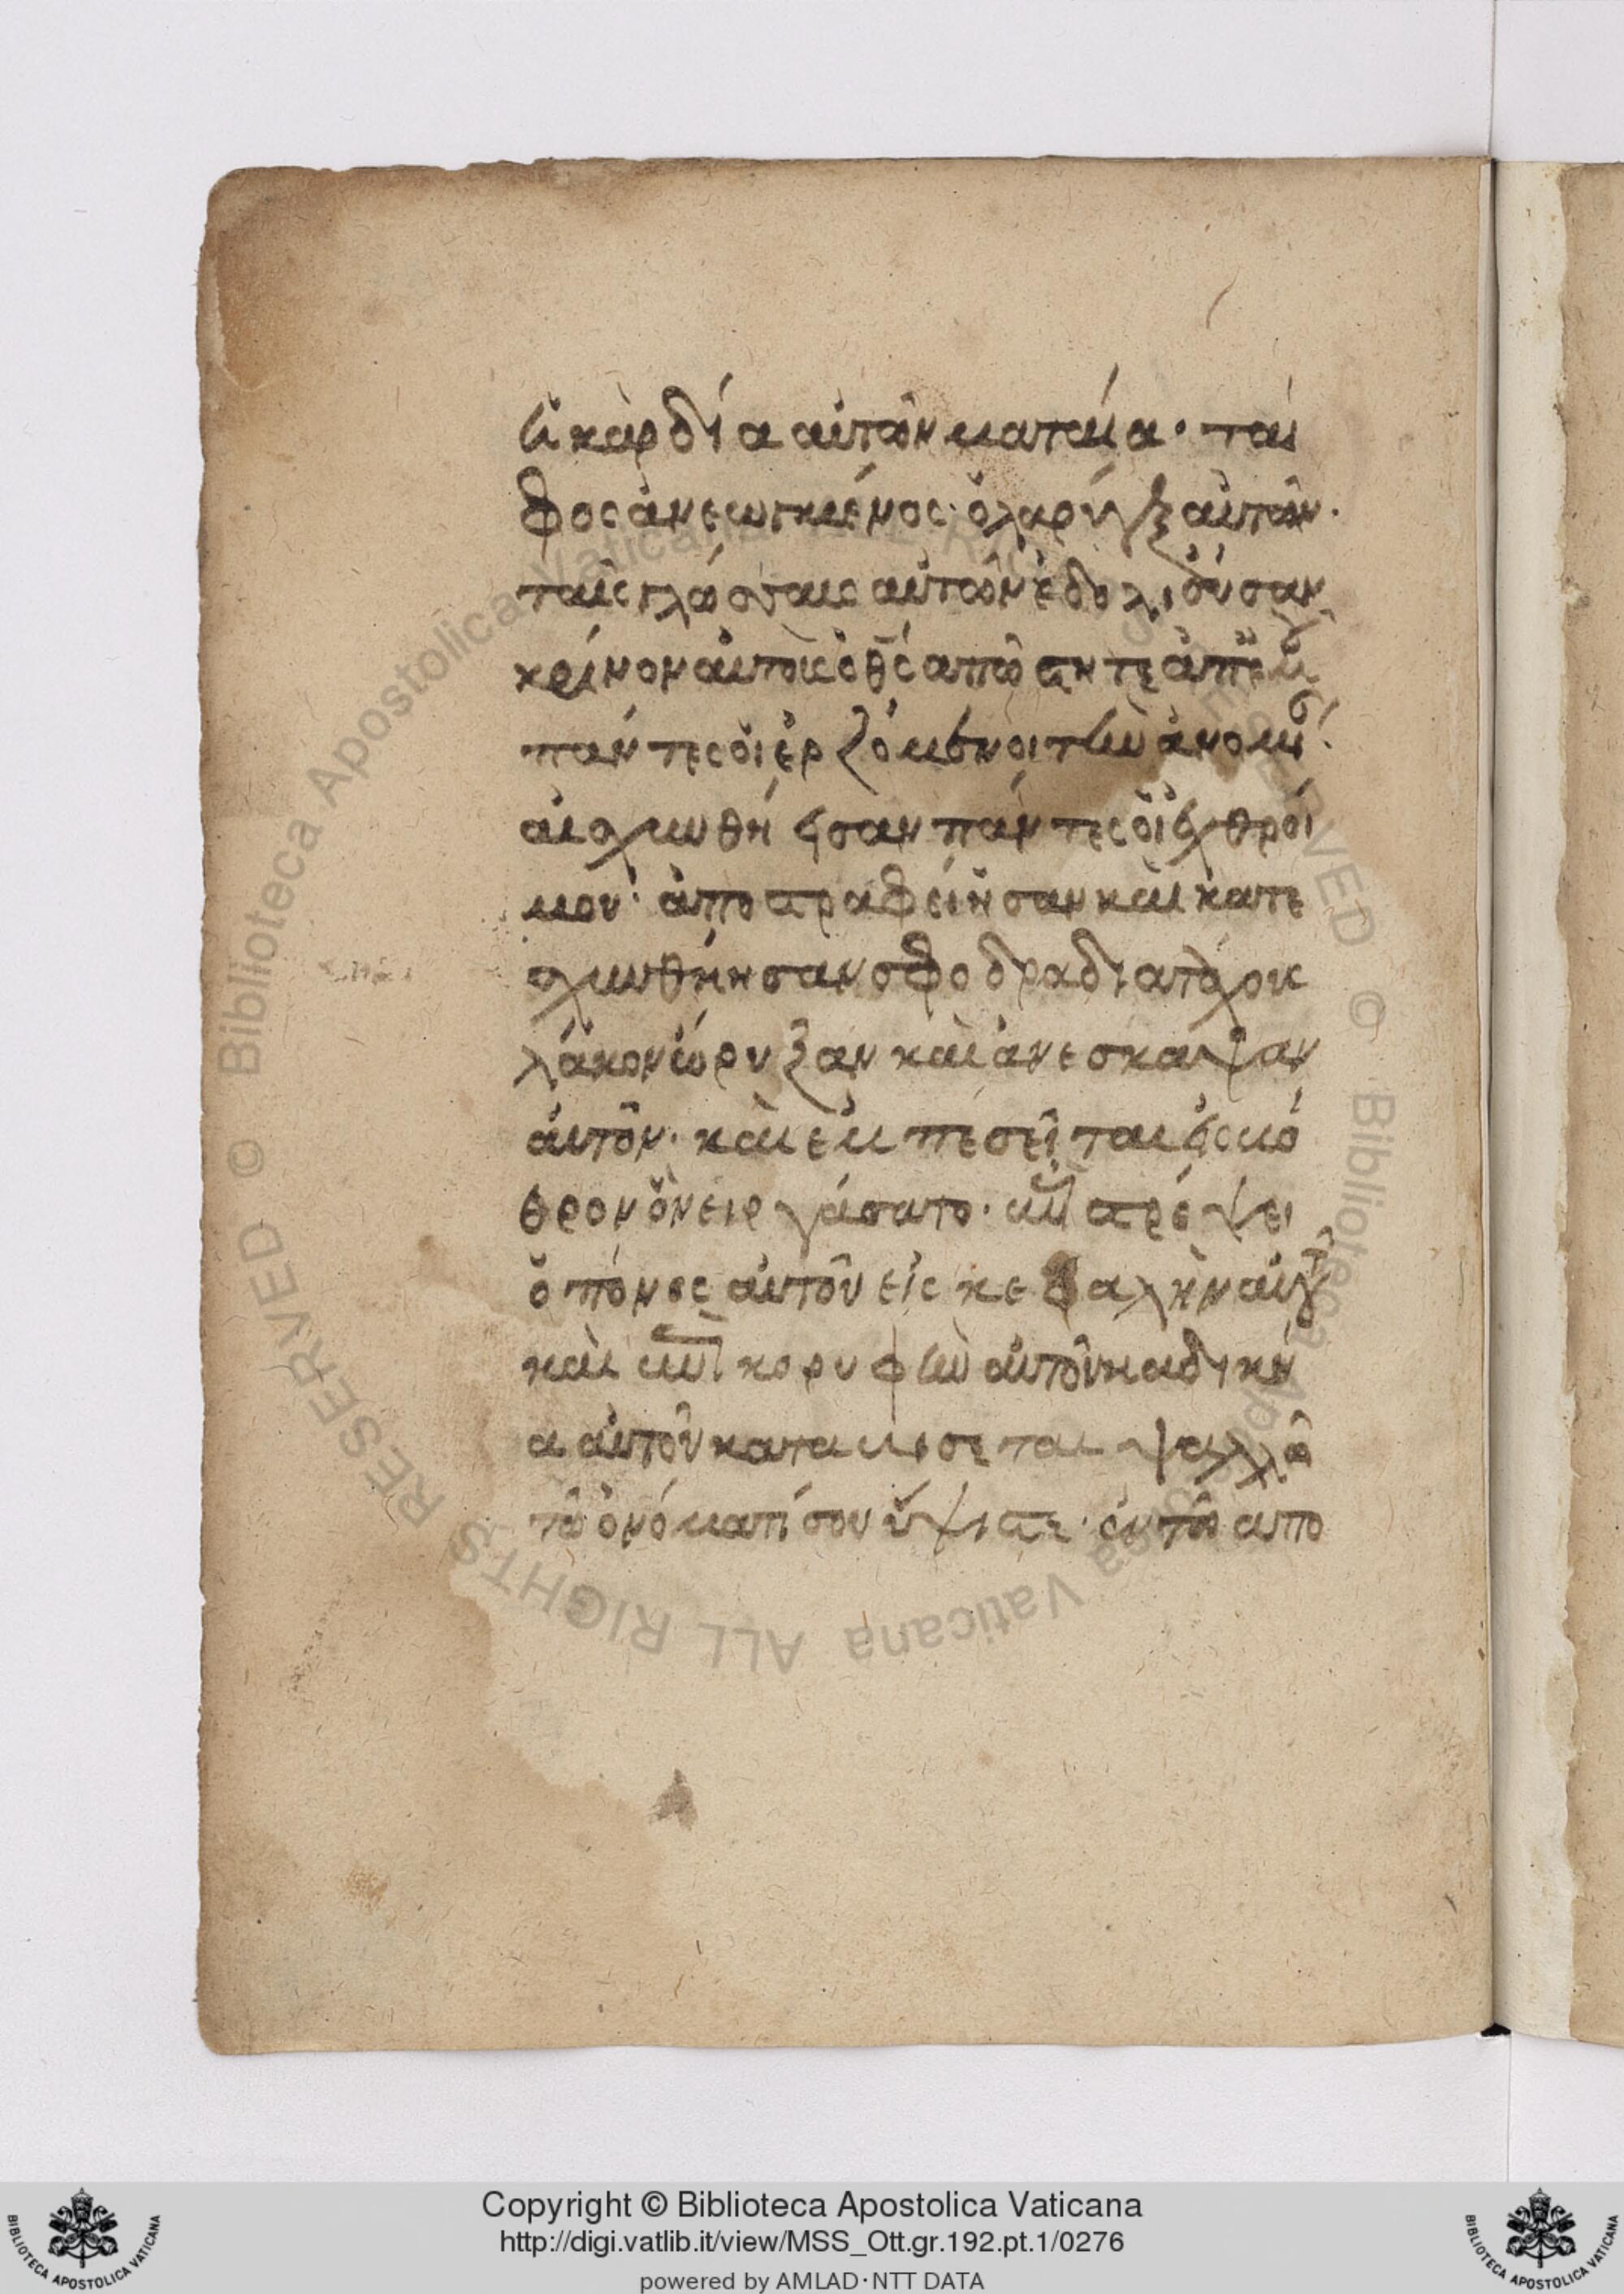 ἡ καρδία αὐτῶν ματαία· τά
φος ἀνεωγμένος· ὁ λάρυγξ αὐτῶν·
ταῖς γλώσσαις αὐτῶν ἐδολιοῦσαν
κρίνον αὐτοὺς ὁ θς ἀποστητε ἀπ ἐμοῦ
πάντες οἱ ἐρχόμενοι τὴν ἀνομί
αισχυνθήησαν πάντες οἱ ἐχθροί
μου· ἀποστραφείησαν καὶ κατε
σχυνθήησαν σφοδρα δια τάχους
λάκον ὤρυξαν καὶ ἀνεσκαψαν
αὐτὸν· καὶ ἐμπεσεῖται εἰς βό
θρον ὃν εἰργάσατο· ἐπιστρέψει
ὁ πόνος αὐτοῦ εἰς κεφαλὴν αὐτοῦ
καὶ ἐπὶ κορυφὴν αὐτοῦ η αδικη
α αὐτοῦ καταβήσεται ψάλλω
τῶ ὀνόματί σου ὕψιστε· ἐν τῶ απο
Copyright © Biblioteca Apostolica Vaticana
http://digi.vatlib.it/view/MSS_Ott.gr.192.pt.1/0276
powered by AMLAD·NTT DATA
BIBLIOTECA APOSTOLICA VATICANA
BIBLIOTECA APOSTOLICA VATICANA
© Biblioteca Apostolica Vaticana ALL RIGHTS RESERVED © Biblioteca Apostolica Vaticana ALL RIGHTS RESERVED